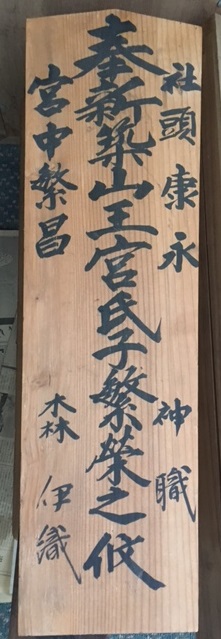 社頭康永 神職
奉新築山王宮氏子繁榮之攸
宮中繁昌 森 伊織